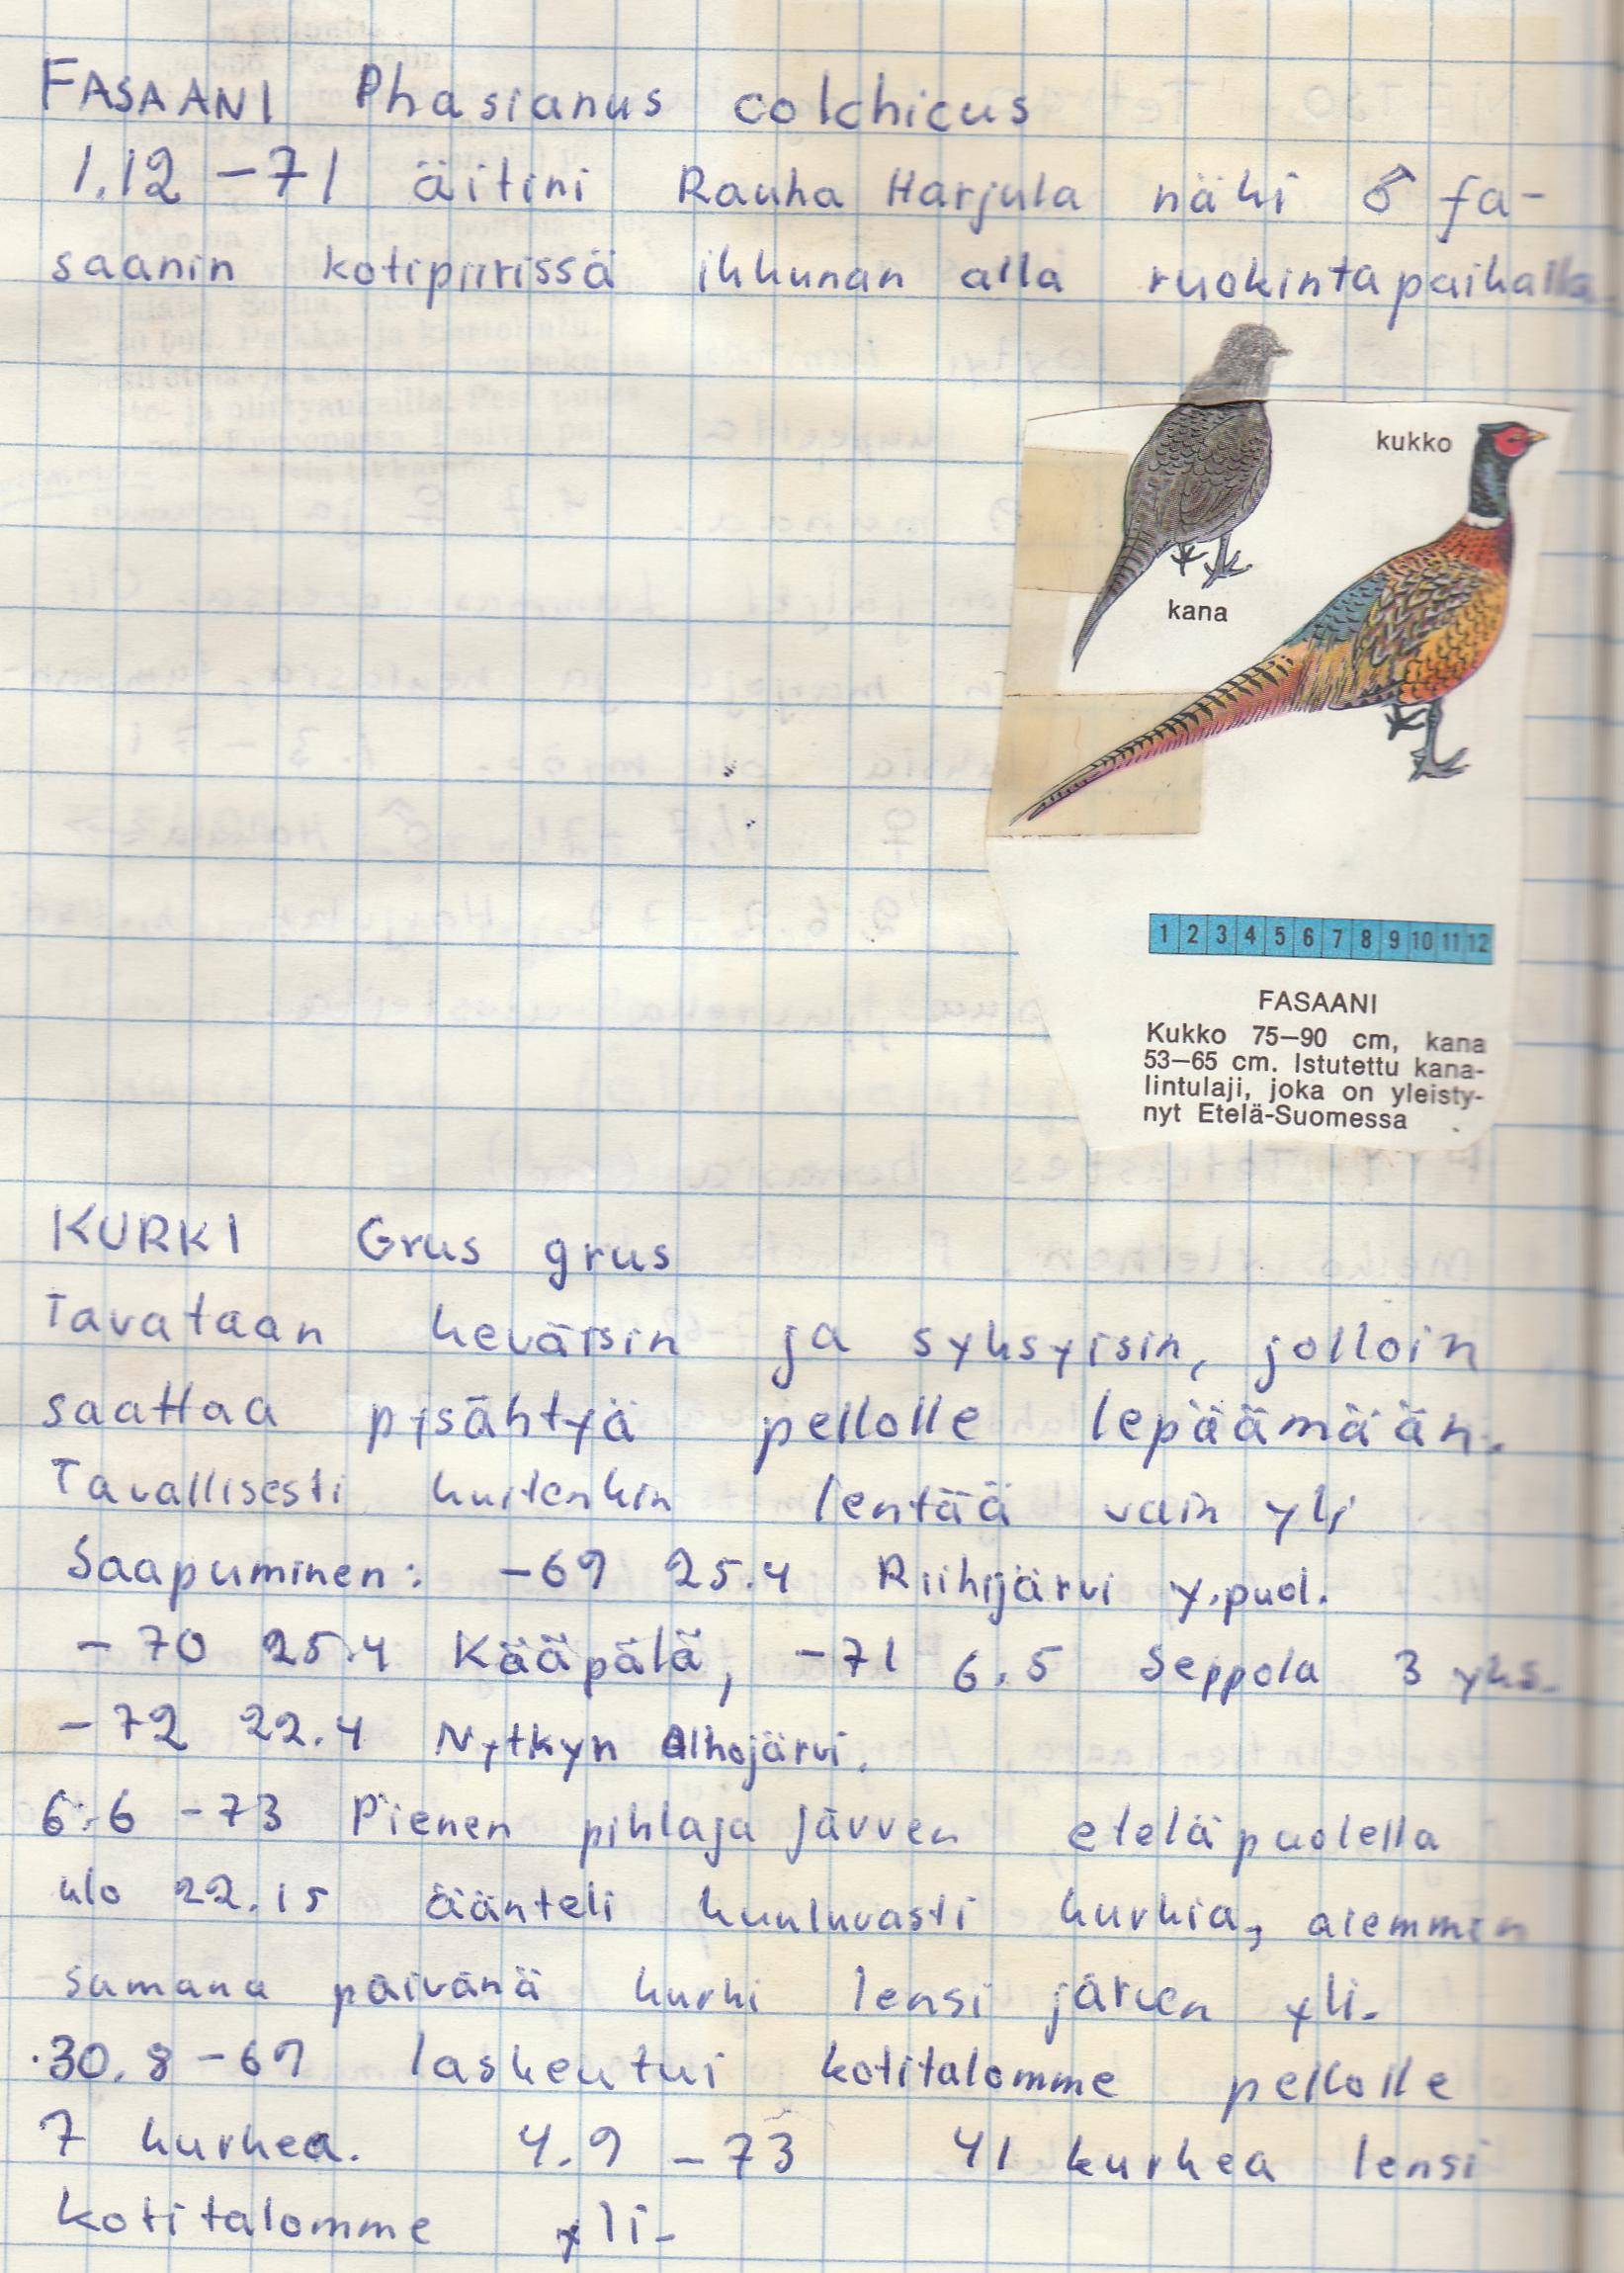 FASAANI Phasianus colchicus
1.12 -71 äitini Rauha Harjula näki ♂ fa-
saanin kotipiirissä ikkunan alla ruokintapaikalla
kukko
kana
1 2 3 4 5 6 7 8 9 10 11 12
FASAANI
Kukko 75—90 cm, kana
53—65 cm. Istutettu kana-
lintulaji, joka on yleisty-
nyt Etelä-Suomessa
KURKI Grus grus
Tavataan keväisin ja syksyisin, jolloin
saattaa pysähtyä pellolle lepäämään.
Tavallisesti kuitenkin lentää vain yli
Saapuminen: -69 25.4 Riihijärvi y.puol.
-70 25.4 Kääpälä, -71 6.5 Seppola 3 yks.
-72 22.4 Nytkyn Alhojärvi.
6.6 -73 Pienen pihlajajärven eteläpuolella
klo 22.15 äänteli kuuluvasti kurkia, aiemmin
samana päivänä kurki lensi järven yli.
30.8 -69 laskeutui kotitalomme pellolle
7 kurkea. 4.9 -73 41 kurkea lensi
kotitalomme yli.